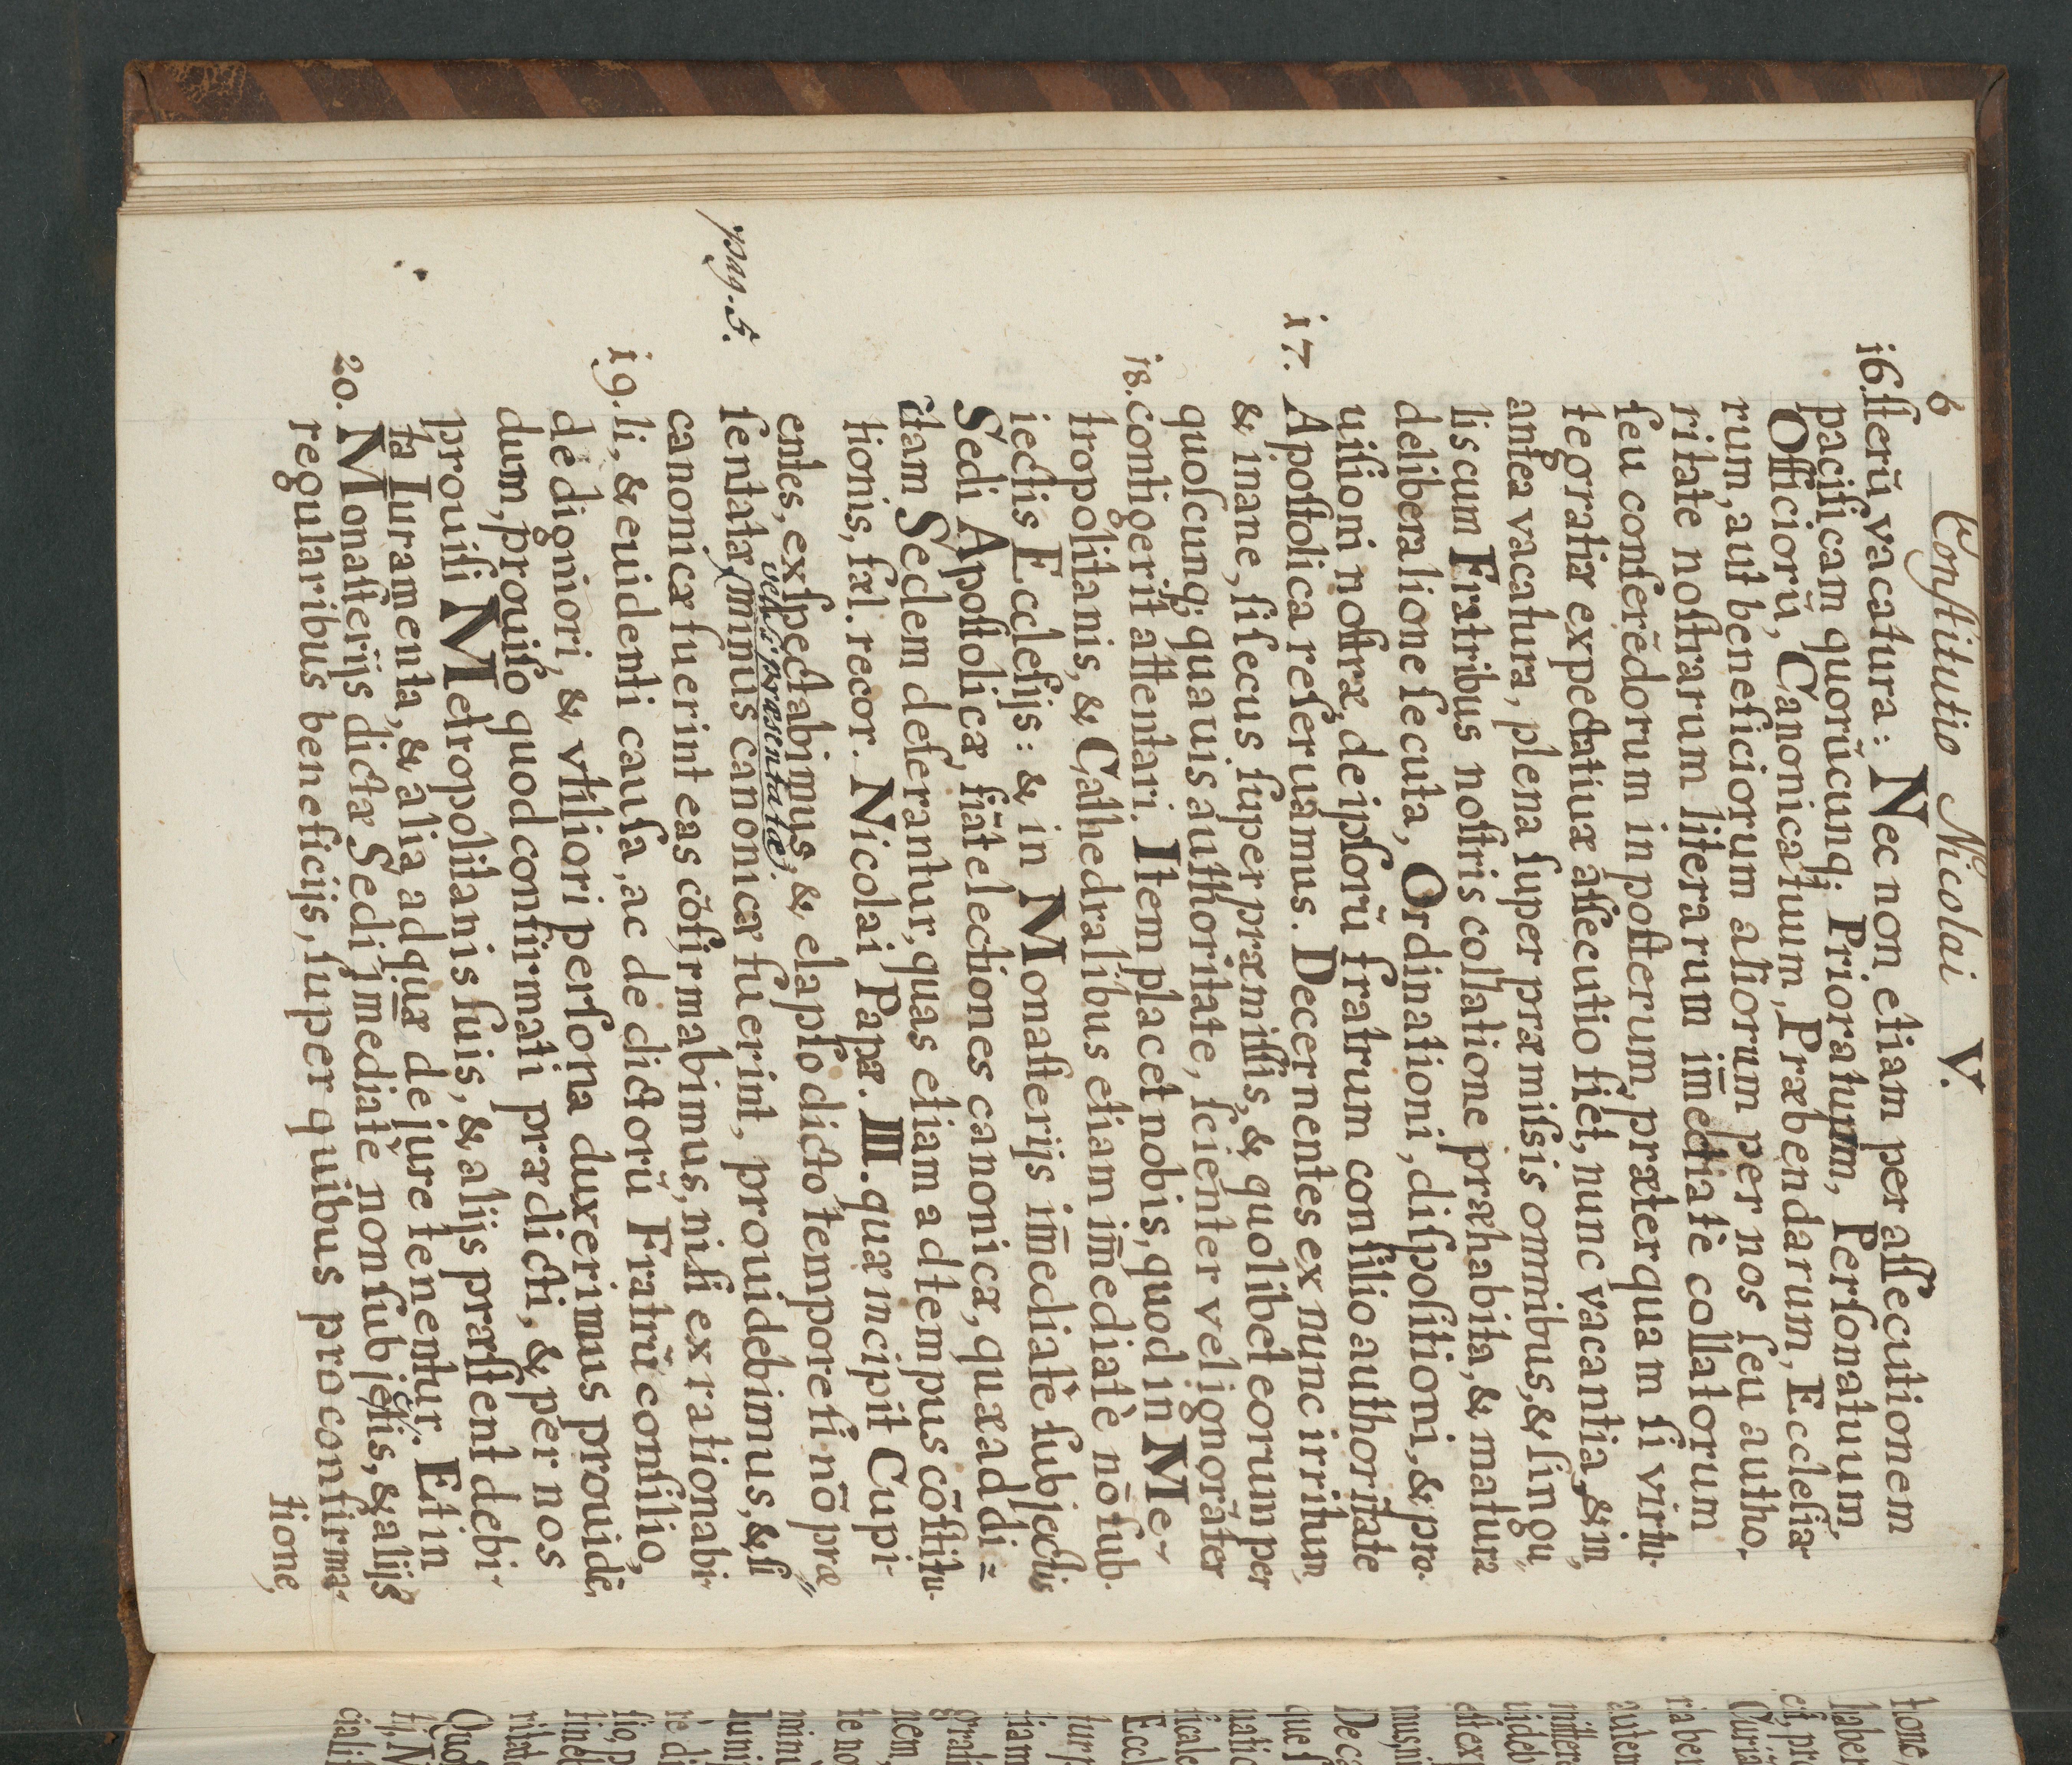 6 Conſtitutio Nicolai V.
16. ſterū vacatura: Nec non etiam per aſſecutionem
pacificam quorūcunq; Prioratuum, Perſonatuum,
Officiorū, Canonicatuum, Præbendarum, Eccleſiæ
rum, aut beneficiorum aliorum per nos ſeu autho,
ritate noſtrarum literarum im̄ediatè collatorum
ſeu conferēdorum in poſterum, præterquam ſi virtu-
te gratiæ expectatiuæ aſſecutio fiet, nunc vacantia, & in,
antea vacatura, plena ſuper præmiſsis omnibus, & ſingu,,
lis cum Fratribus noſtris collatione præhabita, & matura
deliberatione ſecuta, Ordinationi, diſpoſitioni, & pro-
uiſioni noſtræ, de ipſorū fratrum conſilio authoritate
17. Apoſtolica reſeruamus. Decernentes ex nunc irritum,
& inane, ſi ſecus ſuper præmiſſis, & quolibet eorum per
quoſcunq; quauis authoritate, ſcienter vel ignorāter
18. contigerit attentari. Item placet nobis, quod in Me-
tropolitanis, & Cathedralibus etiam im̄ediatè nō ſub-
iectis Eccleſijs: & in Monaſterijs im̄ediatè ſubiectis
Sedi Apoſtolicæ, fiāt electiones canonicæ, quæ ad di=
ctam Sedem deferantur, quas etiam ad tempus cōſtitu-
tionis, fæl. recor. Nicolai Papæ. III. quæ incipit Cupi-
entes, exſpectabimus, & elapſo dicto tempore ſi nō præ,,
vel si præsentatæ
pag. 5. ſentatæ, (minus canonicæ fuerint, prouidebimus, & ſi
canonicæ fuerint eas cōfirmabimus, niſi ex rationabi-
19. li, & euidenti cauſa, ac de dictorū Fratrū conſilio,
de digniori, & vtiliori perſona duxerimus prouidē,
dum, prouiſo quod confirmati prædicti, & per nos
prouiſi Metropolitanis ſuis, & aliis præſtent debi-
ta Iuramenta, & alia ad quæ de jure tenentur. Et in
20. Monaſterijs dictæ Sedi im̄ediatè non ſubjectis, & alijs
regularibus beneficijs, ſuper quibus pro confirma-
tione,